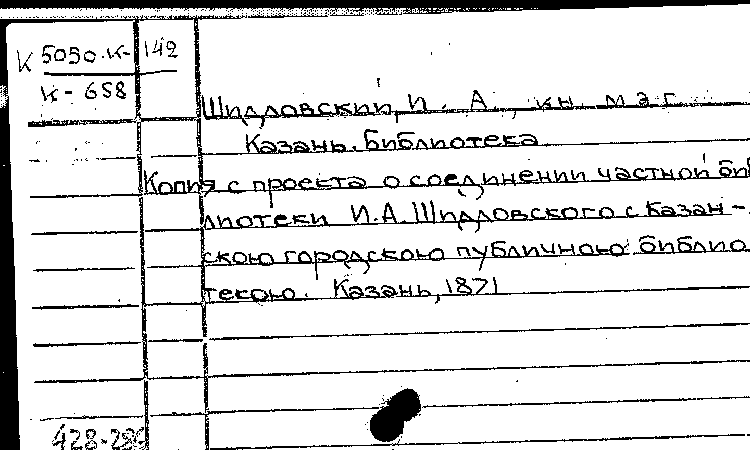 К 5030.К- 142
К- 658
Шидловский, И. А., кн. маг.
Казань. Библиотека
Копия с проекта о соединении частной биб
лиотеки И.А. Шидловского с Казан-
скою городскою публичною библио
текою. Казань, 1871